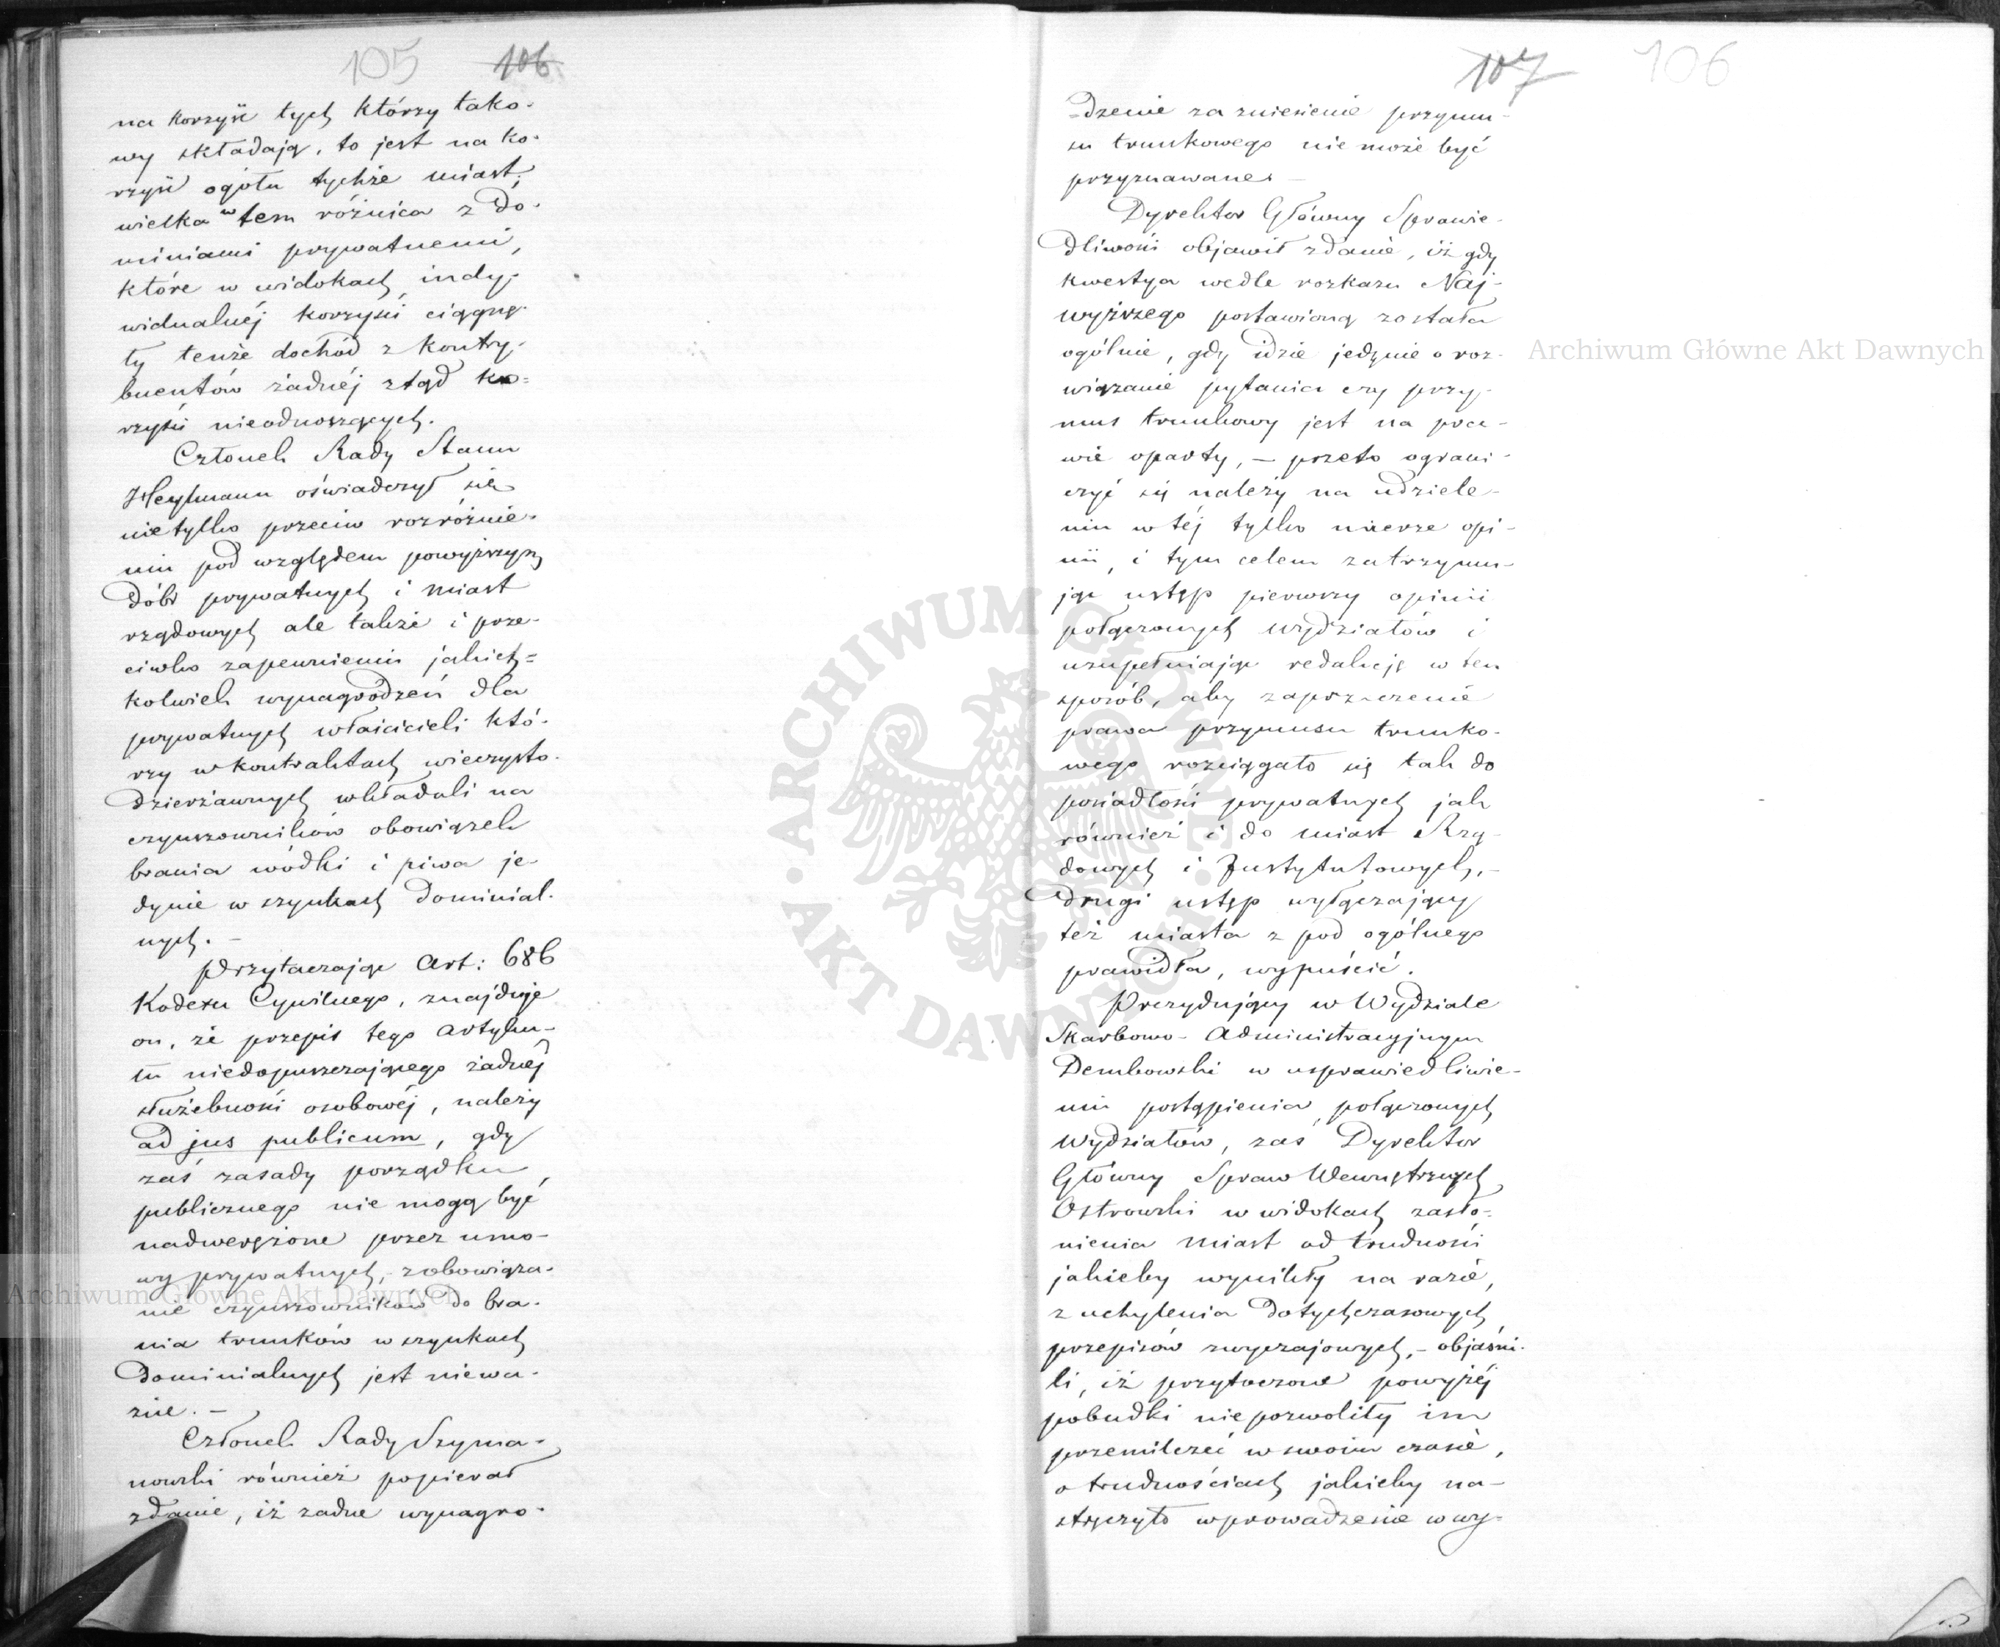 105 106
na korzyść tych którzy tako-
wy składają, to jest na ko-
rzyść ogółu tychże miast;
wielka w tem różnica z do-
miniami prywatnemi,
które w widokach indy-
widualnéj korzyści ciągnę-
ły tenże dochód z kontry-
buentów żadnéj ztąd ko=
rzyści nieodnoszących.
Członek Rady Stanu
Heylmann oświadczył się
nietylko przeciw rozróżnie-
niu pod względem powyższym
dóbr prywatnych i miast
rządowych ale także i prze-
ciwko zapewnieniu jakich=
kolwiek wynagrodzeń dla
prywatnych właścicieli któ-
rzy w kontraktach wieczysto-
dzierżawnych wkładali na
czynszowników obowiązek
brania wódki i piwa je-
dynie w szynkach dominial-
nych. —
Przytaczając Art: 686
Kodexu Cywilnego, znajduje
on, że przepis tego Artyku-
łu niedopuszczającego żadnéj
służebności osobowéj, należy
ad jus publicum, gdy
zaś zasady porządku
publicznego nie mogą być
nadwerężone przez umo-
wy prywatnych, zobowiąza-
nie czynszowników do bra-
nia trunków w szynkach
dominialnych jest niewa-
żne. —
Członek Rady Szyma-
nowski również popierał
zdanie, iż żadne wynagro-
107 106
=dzenie za zniesienie przymu-
su trunkowego nie może być
przyznawane. —
Dyrektor Główny Sprawie-
dliwości objawił zdanie, iż gdy
kwestya wedle rozkazu Naj-
wyższego postawioną została
ogólnie, gdy idzie jedynie o roz-
wiązanie pytania czy przy-
mus trunkowy jest na pra-
wie oparty, — przeto ograni-
czyć się należy na udziele-
niu w téj tylko mierze opi-
nii, i tym celem zatrzymu-
jąc ustęp pierwszy opinii
połączonych Wydziałów i
uzupełniając redakcję w ten
sposób, aby zaprzeczenie
prawa przymusu trunko-
wego rozciągało się tak do
posiadłości prywatnych jak
również i do miast Rzą-
dowych i Instytutowych, —
drugi ustęp wyłączający
też miasta z pod ogólnego
prawidła, wypuścić.
Prezydujący w Wydziale
Skarbowo-Administracyjnym
Dembowski w usprawiedliwie-
niu postąpienia połączonych
Wydziałów, zaś Dyrektor
Główny Spraw Wewnętrznych
Ostrowski w widokach zasło-
nienia miast od trudności
jakieby wynikły na razie,
z uchylenia dotychczasowych
przepisów zwyczajowych, — objaśni-
li, iż przytoczone powyżéj
pobudki nie pozwoliły im
przemilczeć w swoim czasie,
o trudnościach jakieby na-
stręczyło wprowadzenie w wy-
Archiwum Główne Akt Dawnych
Archiwum Główne Akt Dawnych
ARCHIWUM GŁÓWNE AKT DAWNYCH